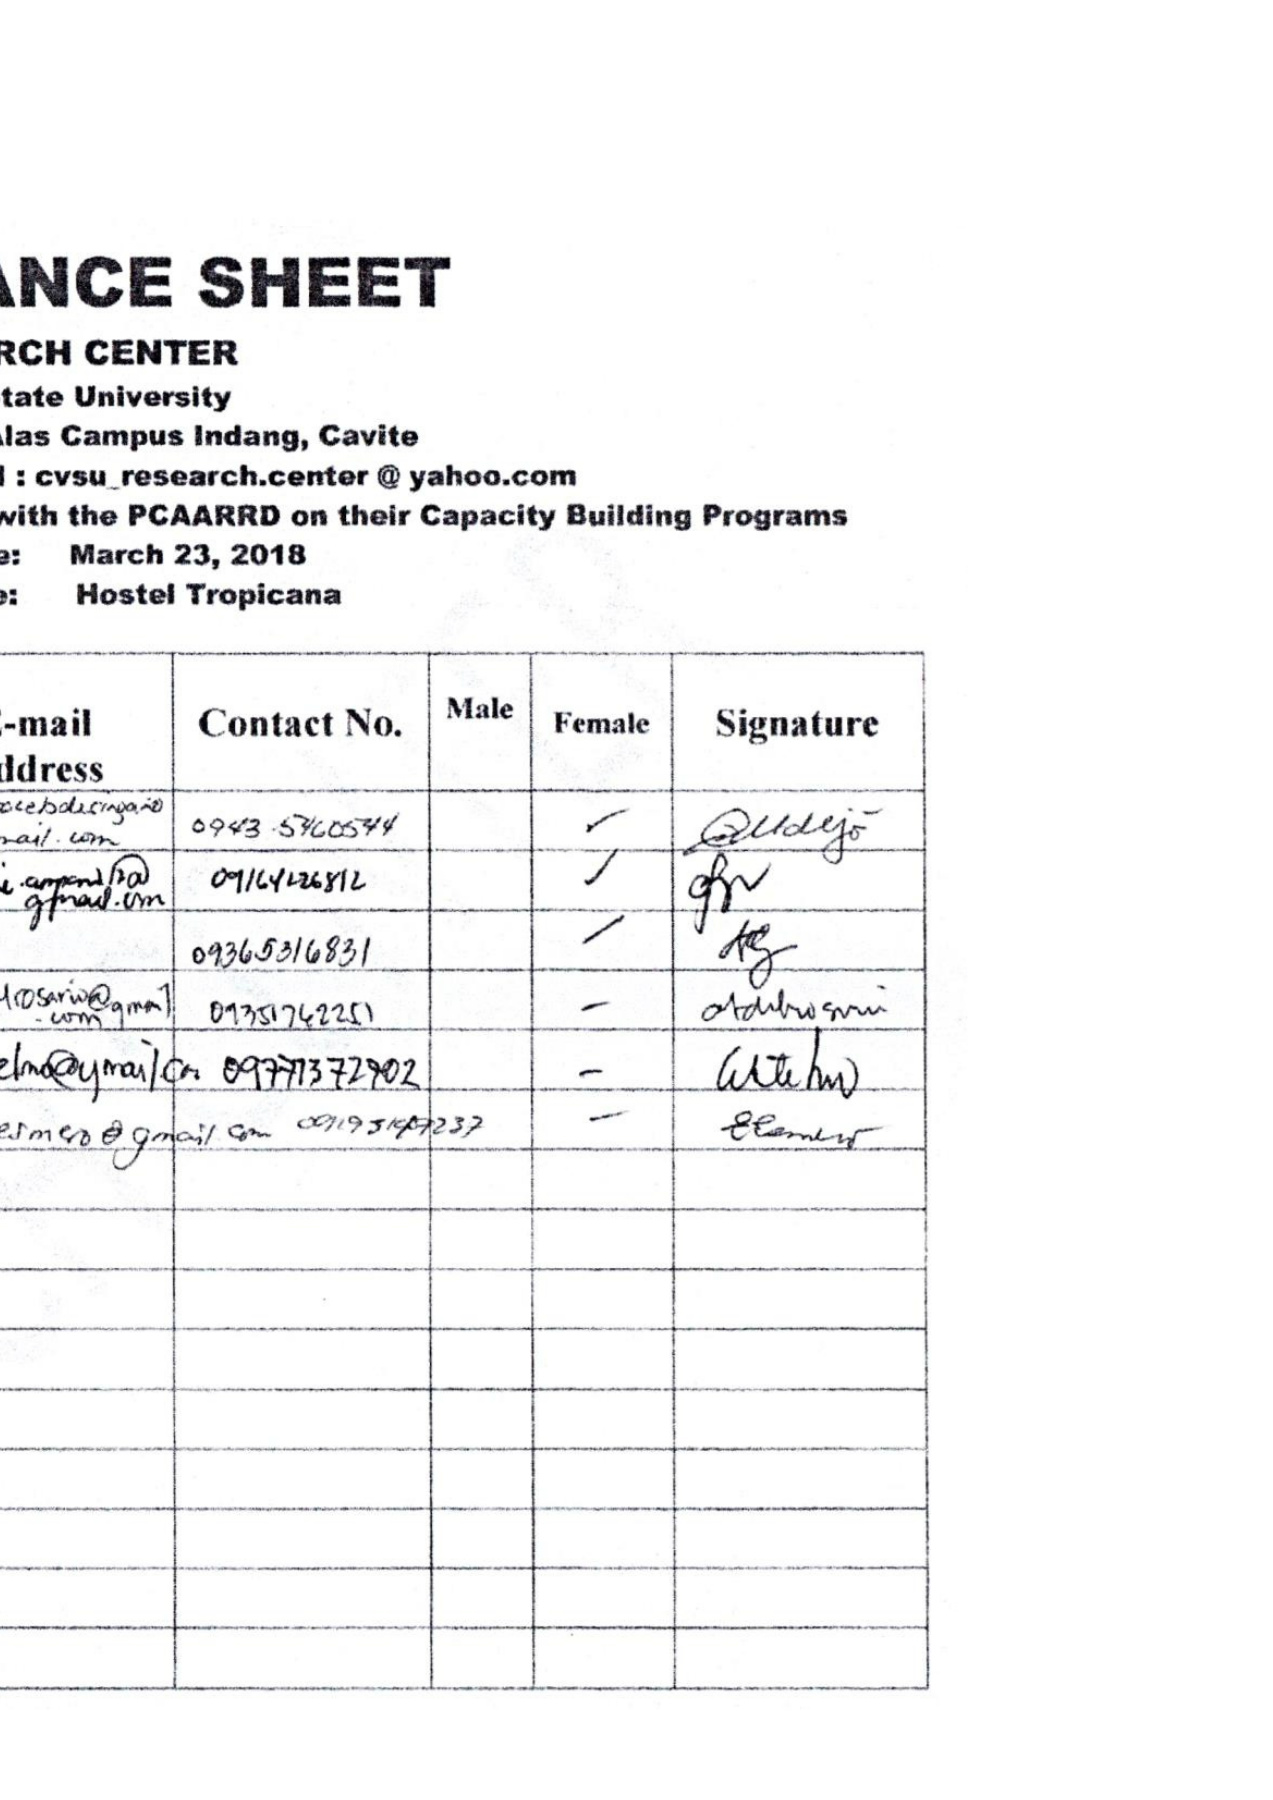 ANCE SHEET
RCH CENTER
tate University
Alas Campus Indang, Cavite
l : cvsu_research.center @ yahoo.com
with the PCAARRD on their Capacity Building Programs
e: March 23, 2018
e: Hostel Tropicana
E-mail
ddress
Contact No.
Male
Female
Signature
mail.com
0943 5460544
gmail.com
09164126812
09365316831
rosario@gmail
.com
09351742251
elmo@ymail.co
09771372902
esmero@gmail.com